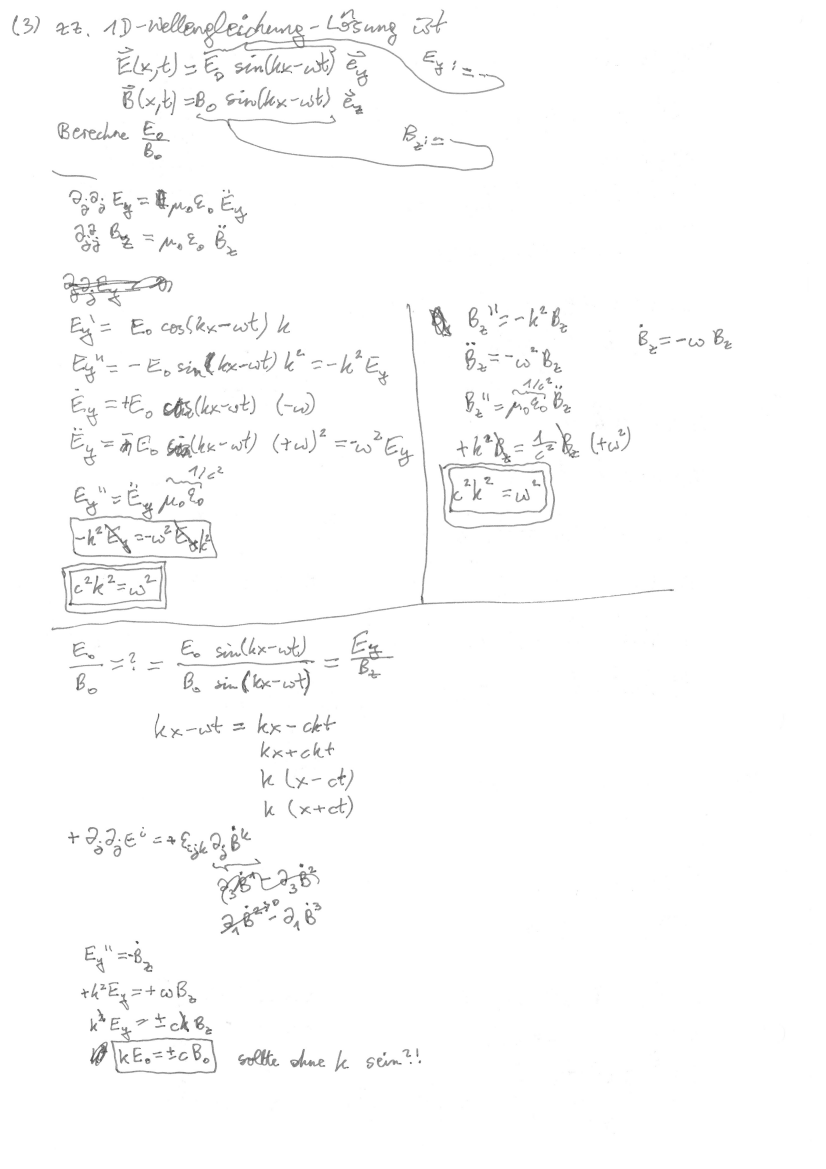 (3) zz. 1D-Wellengleichung-Lösung ist
E⃗(x,t) = E₀ sin(kx-ωt) e⃗_y   E_y := ...
B⃗(x,t) = B₀ sin(kx-ωt) e⃗_z
Berechne E₀/B₀   B_z := ...
∂_j∂_j E_y = μ₀ε₀ Ë_y
∂_j∂_j B_z = μ₀ε₀ B̈_z
E_y' = E₀ cos(kx-ωt) k
E_y'' = -E₀ sin(kx-ωt) k² = -k² E_y
Ė_y = +E₀ cos(kx-ωt) (-ω)
Ë_y = -E₀ sin(kx-ωt) (+ω)² = -ω² E_y
1/c²
E_y'' = Ë_y μ₀ε₀
-k² E_y = -ω² E_y/c²
c²k² = ω²
B_z'' = -k² B_z
Ḃ_z = -ω B_z
B̈_z = -ω² B_z
1/c²
B_z'' = μ₀ε₀ B̈_z
+k² B_z = 1/c² B_z (+ω²)
c²k² = ω²
E₀/B₀ = ? = E₀ sin(kx-ωt) / B₀ sin(kx-ωt) = E_y/B_z
kx-ωt = kx-ckt
kx+ckt
k (x-ct)
k (x+ct)
+∂_j∂_j E^i = +ε_ijk ∂_j Ḃ^k
∂₃Ḃ¹ - ∂₃Ḃ²
∂₁Ḃ²→0 - ∂₁Ḃ³
E_y'' = -Ḃ_z
+k² E_y = +ω B_z
k² E_y = ±ck B_z
k E₀ = ±c B₀   sollte ohne k sein?!